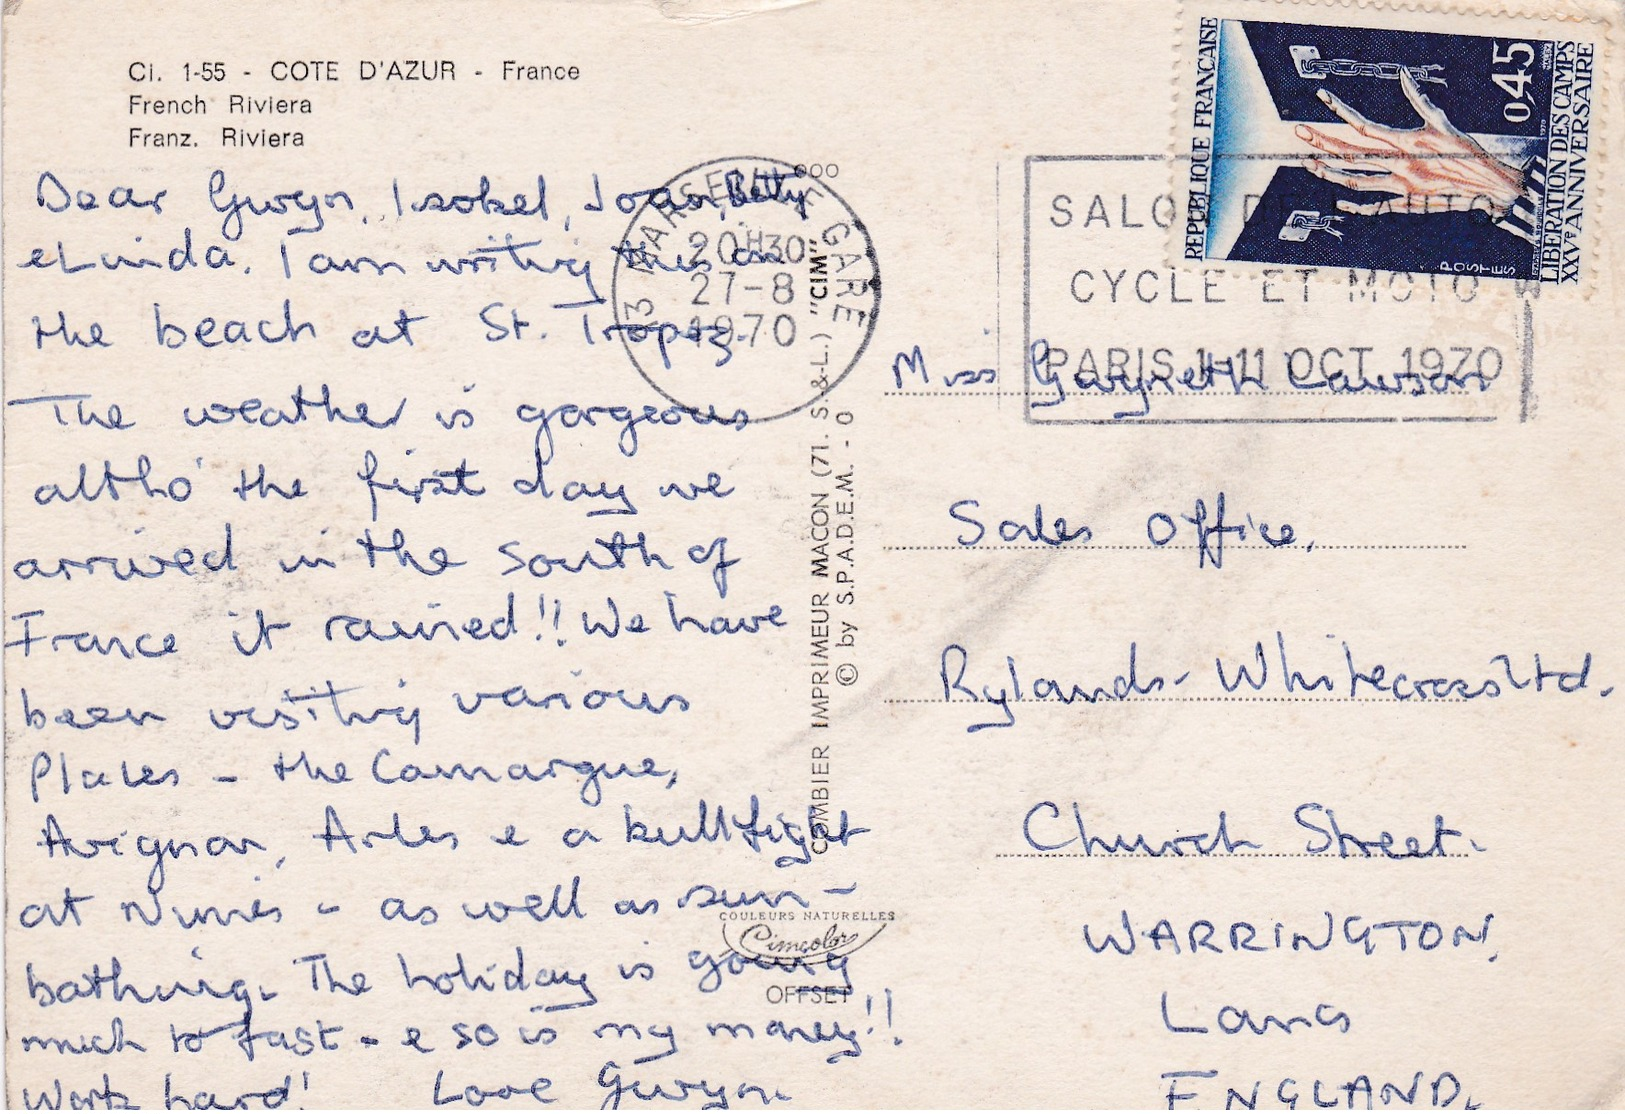 Ci. 1-55 - COTE D'AZUR - France
French Riviera
Franz. Riviera
Dear Gwyn, Isobel, Joan, Betty
& Linda. I am writing this on
the beach at St. Tropez.
The weather is gorgeous
altho' the first day we
arrived in the South of
France it rained!! We have
been visiting various
Places - the Camargue,
Avignon, Arles & a bullfight
at Nimes - as well as sun-
bathing. The holiday is going
much to fast - & so is my money!!
Work hard! Love Gwyn.
13 MARSEILLE GARE
20H30
27-8
1970
COMBIER IMPRIMEUR MACON (71. S.-&-L.) "CIM"
© by S.P.A.D.E.M. - O
COULEURS NATURELLES
Cimcolor
OFFSET
REPUBLIQUE FRANÇAISE
0,45
POSTES
1970
LIBERATION DES CAMPS
XXVe ANNIVERSAIRE
SALON DE L'AUTO
CYCLE ET MOTO
PARIS 1-11 OCT 1970
Miss Gwyneth Lawson
Sales Office,
Rylands-Whitecross Ltd.
Church Street.
WARRINGTON,
Lancs
ENGLAND.